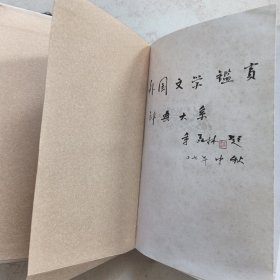 外国文学鑑賞
辞典大系
季羡林 题
二〇〇七年中秋